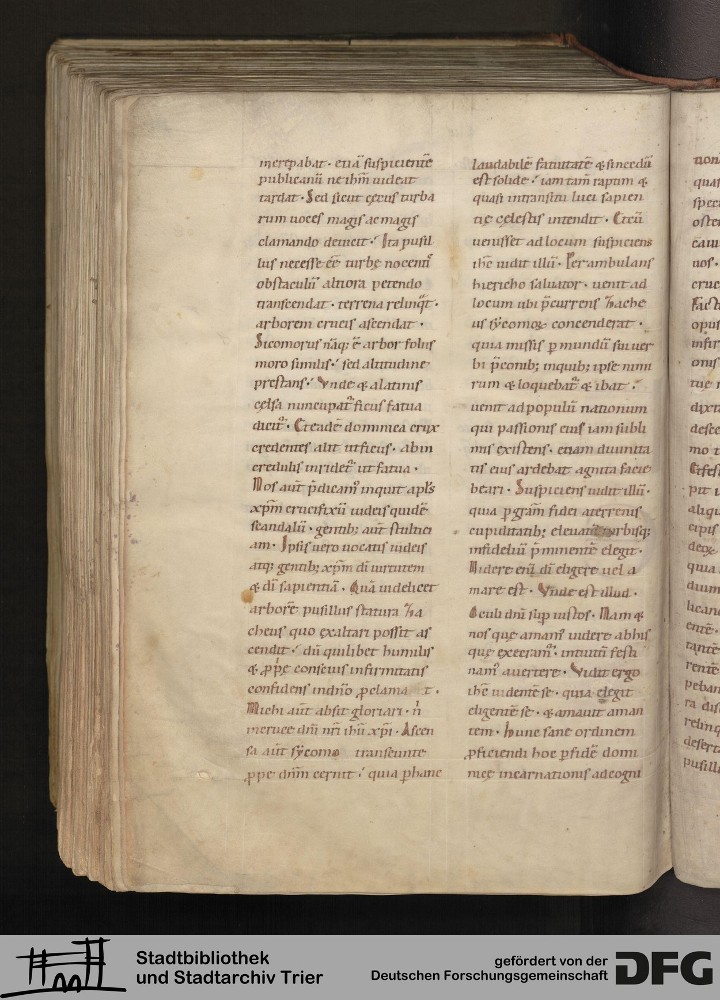 increpabat · etiā suspicientē
publicanū ne ihm̄ uideat
tardat · Sed sicut cęcus turba
rum uoces magis ac magis
clamando deuicit · Ita pusil
lus necesse ēē turbę nocentiū
obstaculū altiora petendo
transcendat · terrena relinq̄t ·
arborem crucis ascendat ·
Sicomorus nāq; ē arbor foliis
moro similis · sed altitudine
prestans · Vnde & a latinis
celsa nuncupat᷑ ficus fatua
dicit᷑ · Et eadē dominica crux
credentes alit ut ficus · ab in
credulis irridet᷑ ut fatua ·
Nos aūt p̄dicam᷒ inquit apl̄s
xp̄m crucifixū iudeis quidē
scandalū · gentib; aūt stultici
am · Ipsis uero uocatis iudeis
atq; gentib; xp̄m dī uirtutem
& dī sapientiā · Quā uidelicet
arborē pusillus statura Za
cheus quo exaltari possit as
cendit · dū quilibet humilis
& ꝓp̄e conscius infirmitatis
confidens in dn̄o ꝓclama t ·
Michi aūt absit gloriari · n̄
in cruce dnī nr̄i ihū xp̄i · Ascen
sa aūt sycomo transeunte
ꝓpe dnm̄ cernit · quia ꝑ hanc
laudabilē fatuitatē & si necdū
est solide · iam tam̄ raptim &
quasi in transitu luci sapien
tię cęlestis intendit · Et cū
uenisset ad locum suspiciens
ihc̄ uidit illū · Perambulans
hiericho saluator · uenit ad
locum ubi p̄currens Zache
us sycomoꝝ conscenderat ·
quia missis ꝑ mundū sui uer
bi p̄conib; in quib; ipse nimi
rum & loquebat᷑ & ibat ·
uenit ad populū nationum
qui passionis eius iam subli
mis existens · etiam diuinita
tis eius ardebat agnita facie
beari · Suspiciens uidit illū ·
quia ꝑ gr̄am fidei a terrenis
cupiditatib; eleuatū turbisq;
infidelū p̄minentē elegit ·
Videre enī dī eligere uel a
mare est · Vnde est illud ·
Oculi dn̄i sup̄ iustos · Nam &
nos quę amam᷒ uidere ab his
quę execram᷒ · intuitū festi
nam᷒ auertere · Vidit ergo
ihc̄ uidentē se · quia elegit
eligentē se · & amauit aman
tem · Hunc sane ordinem
ꝓficiendi hoc ē ꝑ fidē domi
nicę incarnationis ad cogni
Stadtbibliothek
und Stadtarchiv Trier
gefördert von der
Deutschen Forschungsgemeinschaft
DFG